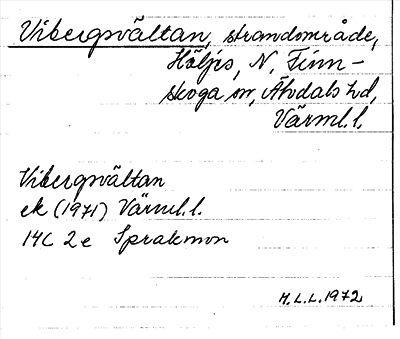 Vibergsvältan, strandområde,
Höljes, N. Finn-
skoga sn, Älvdals hd,
Värml. l.
Vibergsvältan
ek (1971) Värml. l.
14C 2e Sprakmon
M.L.L. 1972